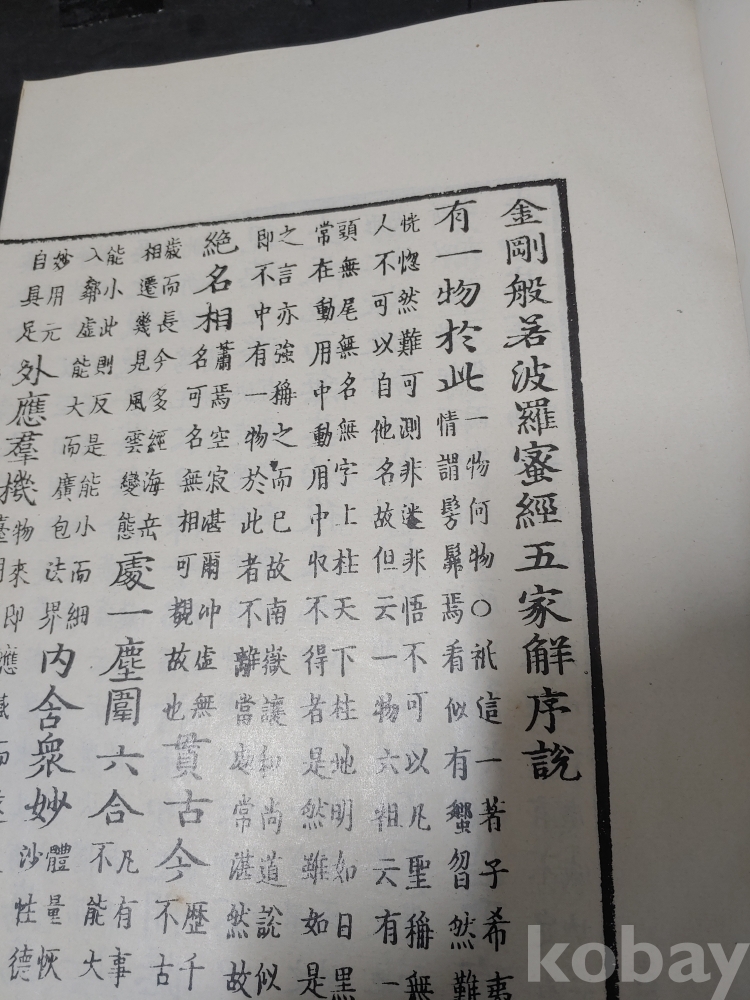 金剛般若波羅蜜經五家解序說
有一物於此
一物何物○祇信一著子希夷
情謂髣髴焉看似有瞥曶然難
恍惚然難可測非迷非悟不可以凡聖稱無
人不可以自他名故但云一物六祖云有一
頭無尾無名無字上柱天下柱地明如日黑
常在動用中動用中収不得者是然雖如是
之言亦強稱之而已故南嶽讓和尚道說似
即不中有一物於此者不離當處常湛然故
絶名相
蕭焉空寂湛爾冲虛無
名可名無相可覩故也
貫古今
歷千
不古
歲而長今多經海岳
相遷幾見風雲變態
處一塵圍六合
凡有事
不能大
能小此則反是能小而細
入鄰虛能大而廣包法界
內含衆妙
體量恢
沙性德
妙用元
自具足
外應羣機
物來即應
kobay